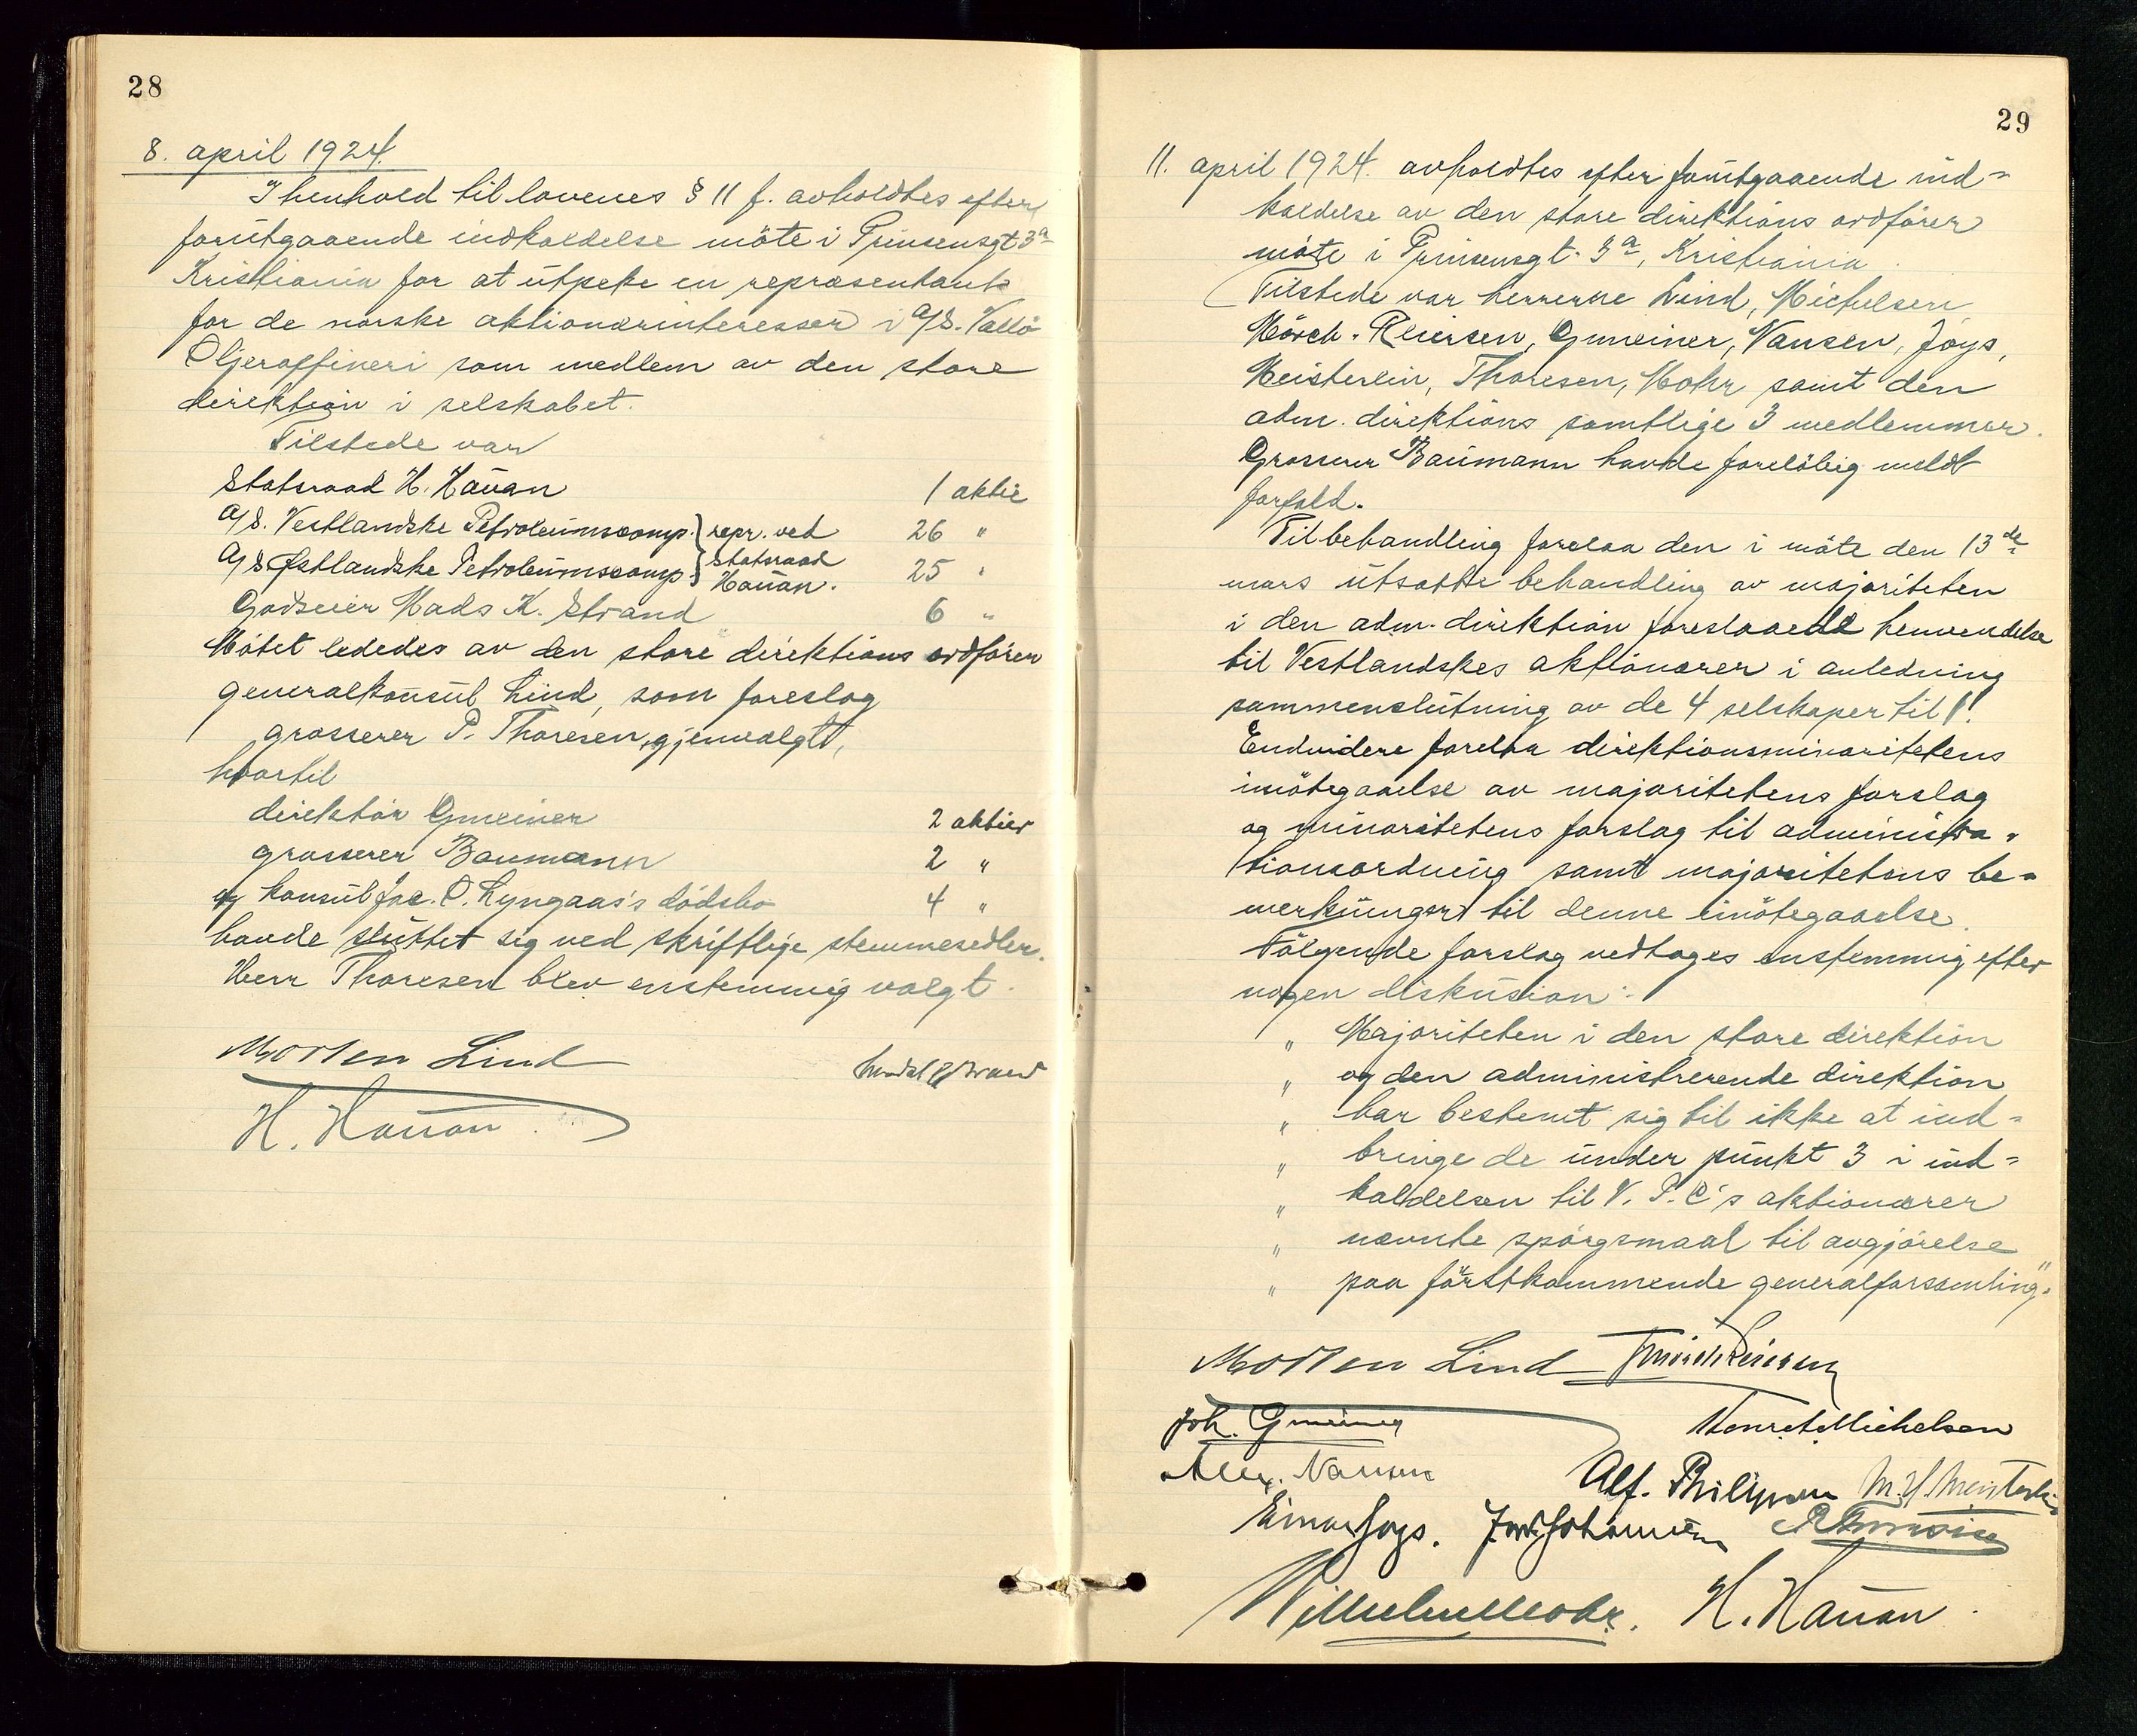 28
8. april 1924.
I henhold til lovenes § 11 f. avholdtes efter
forutgaaende indkaldelse möte i Prinsensgt 3a
Kristiania for at utpeke en repræsentant
for de norske aktionærinteresser i A/S. Vallö
Oljeraffineri som medlem av den store
direktion i selskabet.
Tilstede var
Statsraad H. Hauan 1 aktie
A/S. Vestlandske Petroleumscomp. } repr. ved 26 "
A/S Østlandske Petroleumscomp. } Statsraad Hauan. 25 "
Godseier Mads K. Strand 6 "
Mötet lededes av den store direktions ordförer
generalkonsul Lind, som foreslog
grosserer P. Thoresen gjenvalgt,
hvortil
direktör Gmeiner 2 aktier
grosserer Baumann 2 "
og konsul Jac. C. Lyngaas's dödsbo 4 "
havde sluttet sig ved skriftlige stemmesedler.
Herr Thoresen blev enstemmig valgt.
Morten Lind
H. Hauan
29
11. april 1924. avholdtes efter forutgaaende ind=
kaldelse av den store direktions ordförer
möte i Prinsensgt. 3a, Kristiania.
Tilstede var herrerne Lind, Michelsen,
Mörch-Reiersen, Gmeiner, Nansen, Joys,
Meisterlin, Thoresen, Mohr samt den
adm. direktions samtlige 3 medlemmer.
Grosserer Baumann havde forelöbig meldt
forfald.
Til behandling forelaa den i möte den 13de
mars utsatte behandling av majoriteten
i den adm. direktion foreslaaede henvendelse
til Vestlandskes aktionærer i anledning
sammenslutning av de 4 selskaper til 1.
Endvidere forelaa direktionsminoritetens
imötegaaelse av majoritetens forslag
og minoritetens forslag til administra=
tionsordning samt majoritetens be=
merkninger til denne imötegaaelse.
Fölgende forslag vedtoges enstemmig efter
nogen diskusion:
" Majoriteten i den store direktion
" og den administrerende direktion
" har bestemt sig til ikke at ind=
" bringe de under punkt 3 i ind=
" kaldelsen til V. P. C's aktionærer
" nævnte spörgsmaal til avgjörelse
" paa förstkommende generalforsamling".
Morten Lind Mörch Reiersen
Joh. Gmeiner Michelsen
Alex. Nansen Alf. Philipson M. H. Meisterlin
Einar Joys. P. Thoresen
Wilhelm Mohr. H. Hauan.